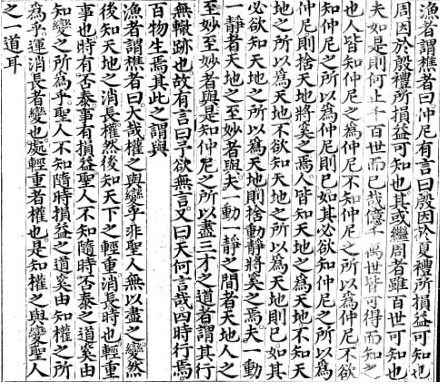 漁者謂樵者曰仲尼有言曰殷因於夏禮所損益可知也
周因於殷禮所損益可知也其或繼周者雖百世可知也
夫如是則何止千百世而已哉億千萬世皆可得而知之
也人皆知仲尼之爲仲尼不知仲尼之所以爲仲尼不欲
知仲尼之所以爲仲尼則已如其必欲知仲尼之所以爲
仲尼則捨天地將奚之焉人皆知天地之爲天地不知天
地之所以爲天地不欲知天地之所以爲天地則已如其
必欲知天地之所以爲天地則捨動靜將奚之焉夫一動
一靜者天地之至妙者與夫一動一靜之間者天地人之
至妙至妙者與是知仲尼之所以盡三才之道者謂其行
無轍跡也故有言曰予欲無言又曰天何言哉四時行焉
百物生焉其此之謂與
漁者謂樵者曰大哉權之與變乎非聖人無以盡之變然
後知天地之消長權然後知天下之輕重消長時也輕重
事也時有否泰事有損益聖人不知隨時否泰之道奚由
知變之所爲乎聖人不知隨時損益之道奚由知權之所
爲乎運消長者變也處輕重者權也是知權之與變聖人
之一道耳